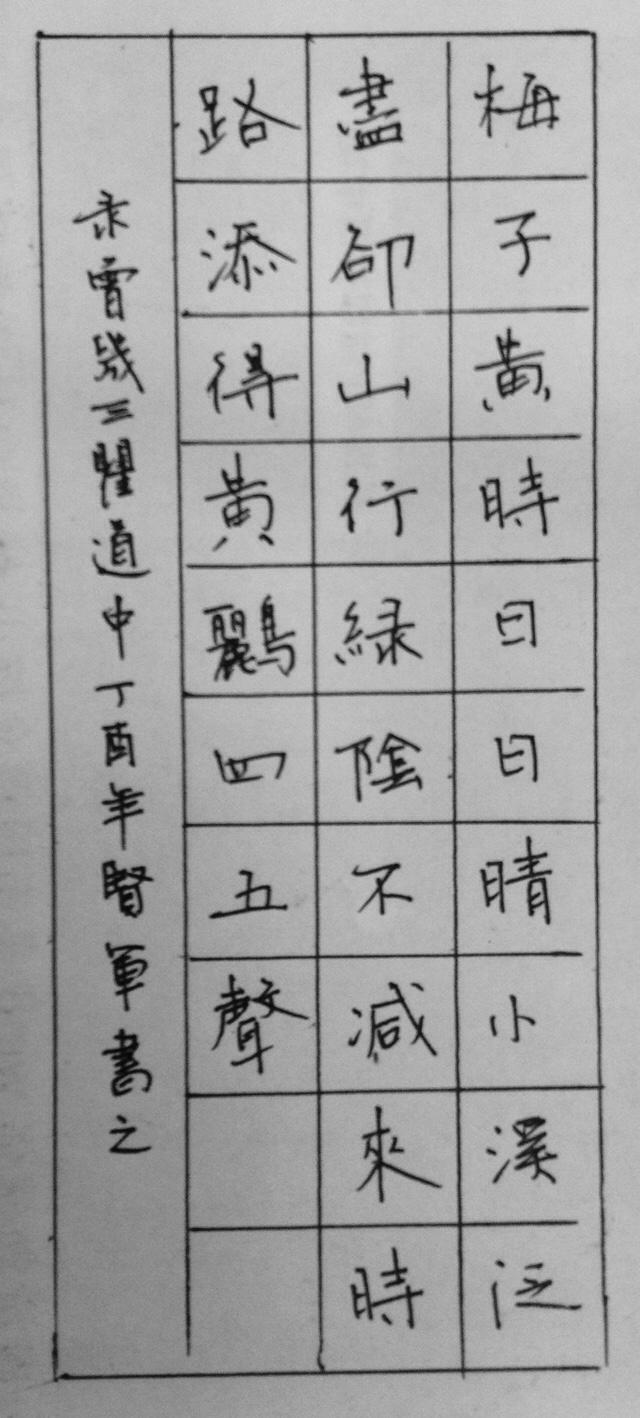 梅子黃時日日晴小溪泛
盡卻山行緑陰不減來時
路添得黃鸝四五聲
录曾幾三瞿道中丁酉年賢軍書之